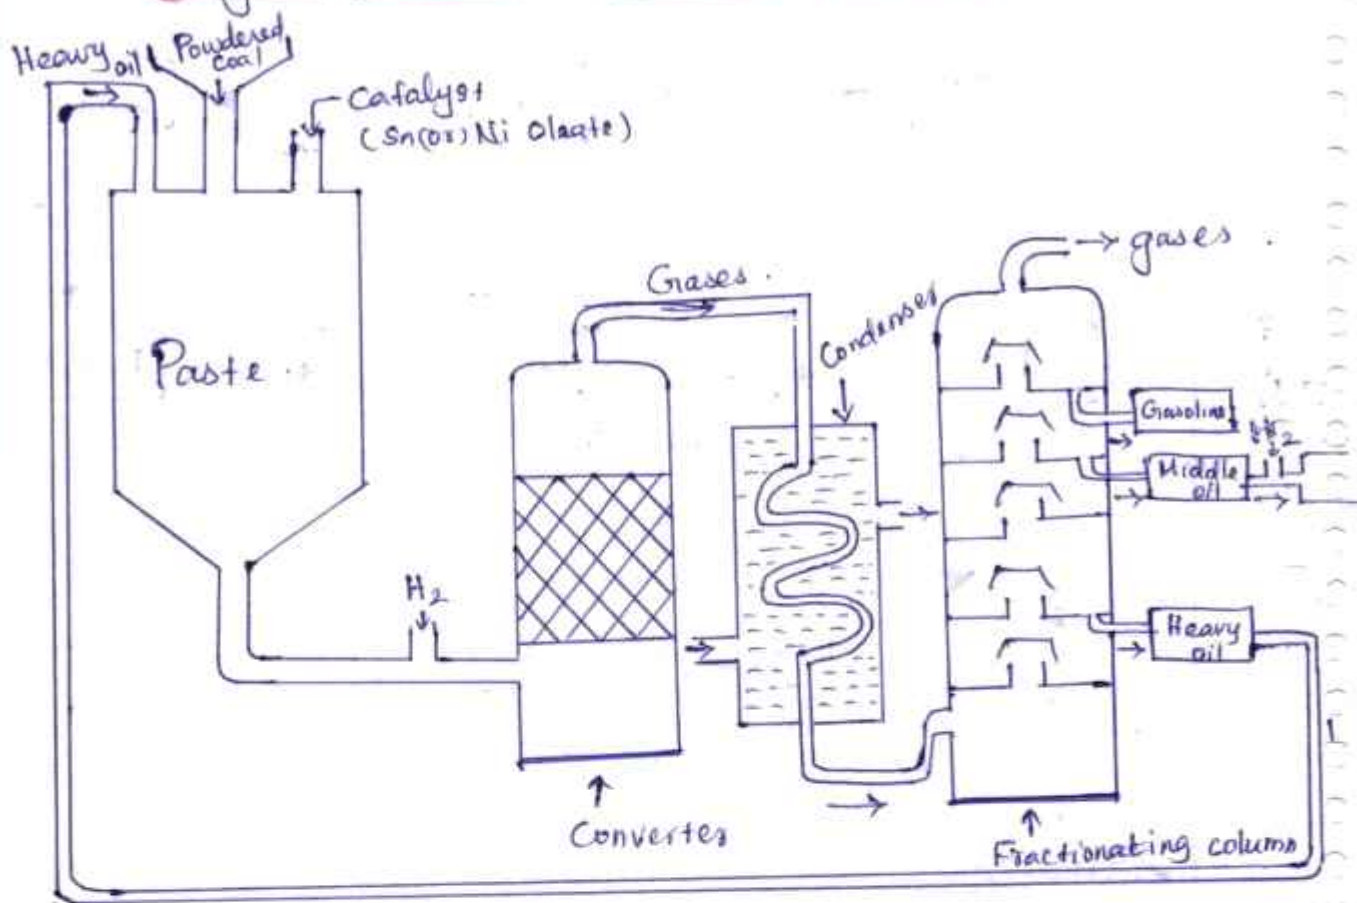 Heavy oil
Powdered
coal
Catalyst
(Sn(or) Ni Oleate)
Paste
H2
Gases
Converter
Condenser
gases
Gasoline
Middle
oil
Heavy
oil
Fractionating column